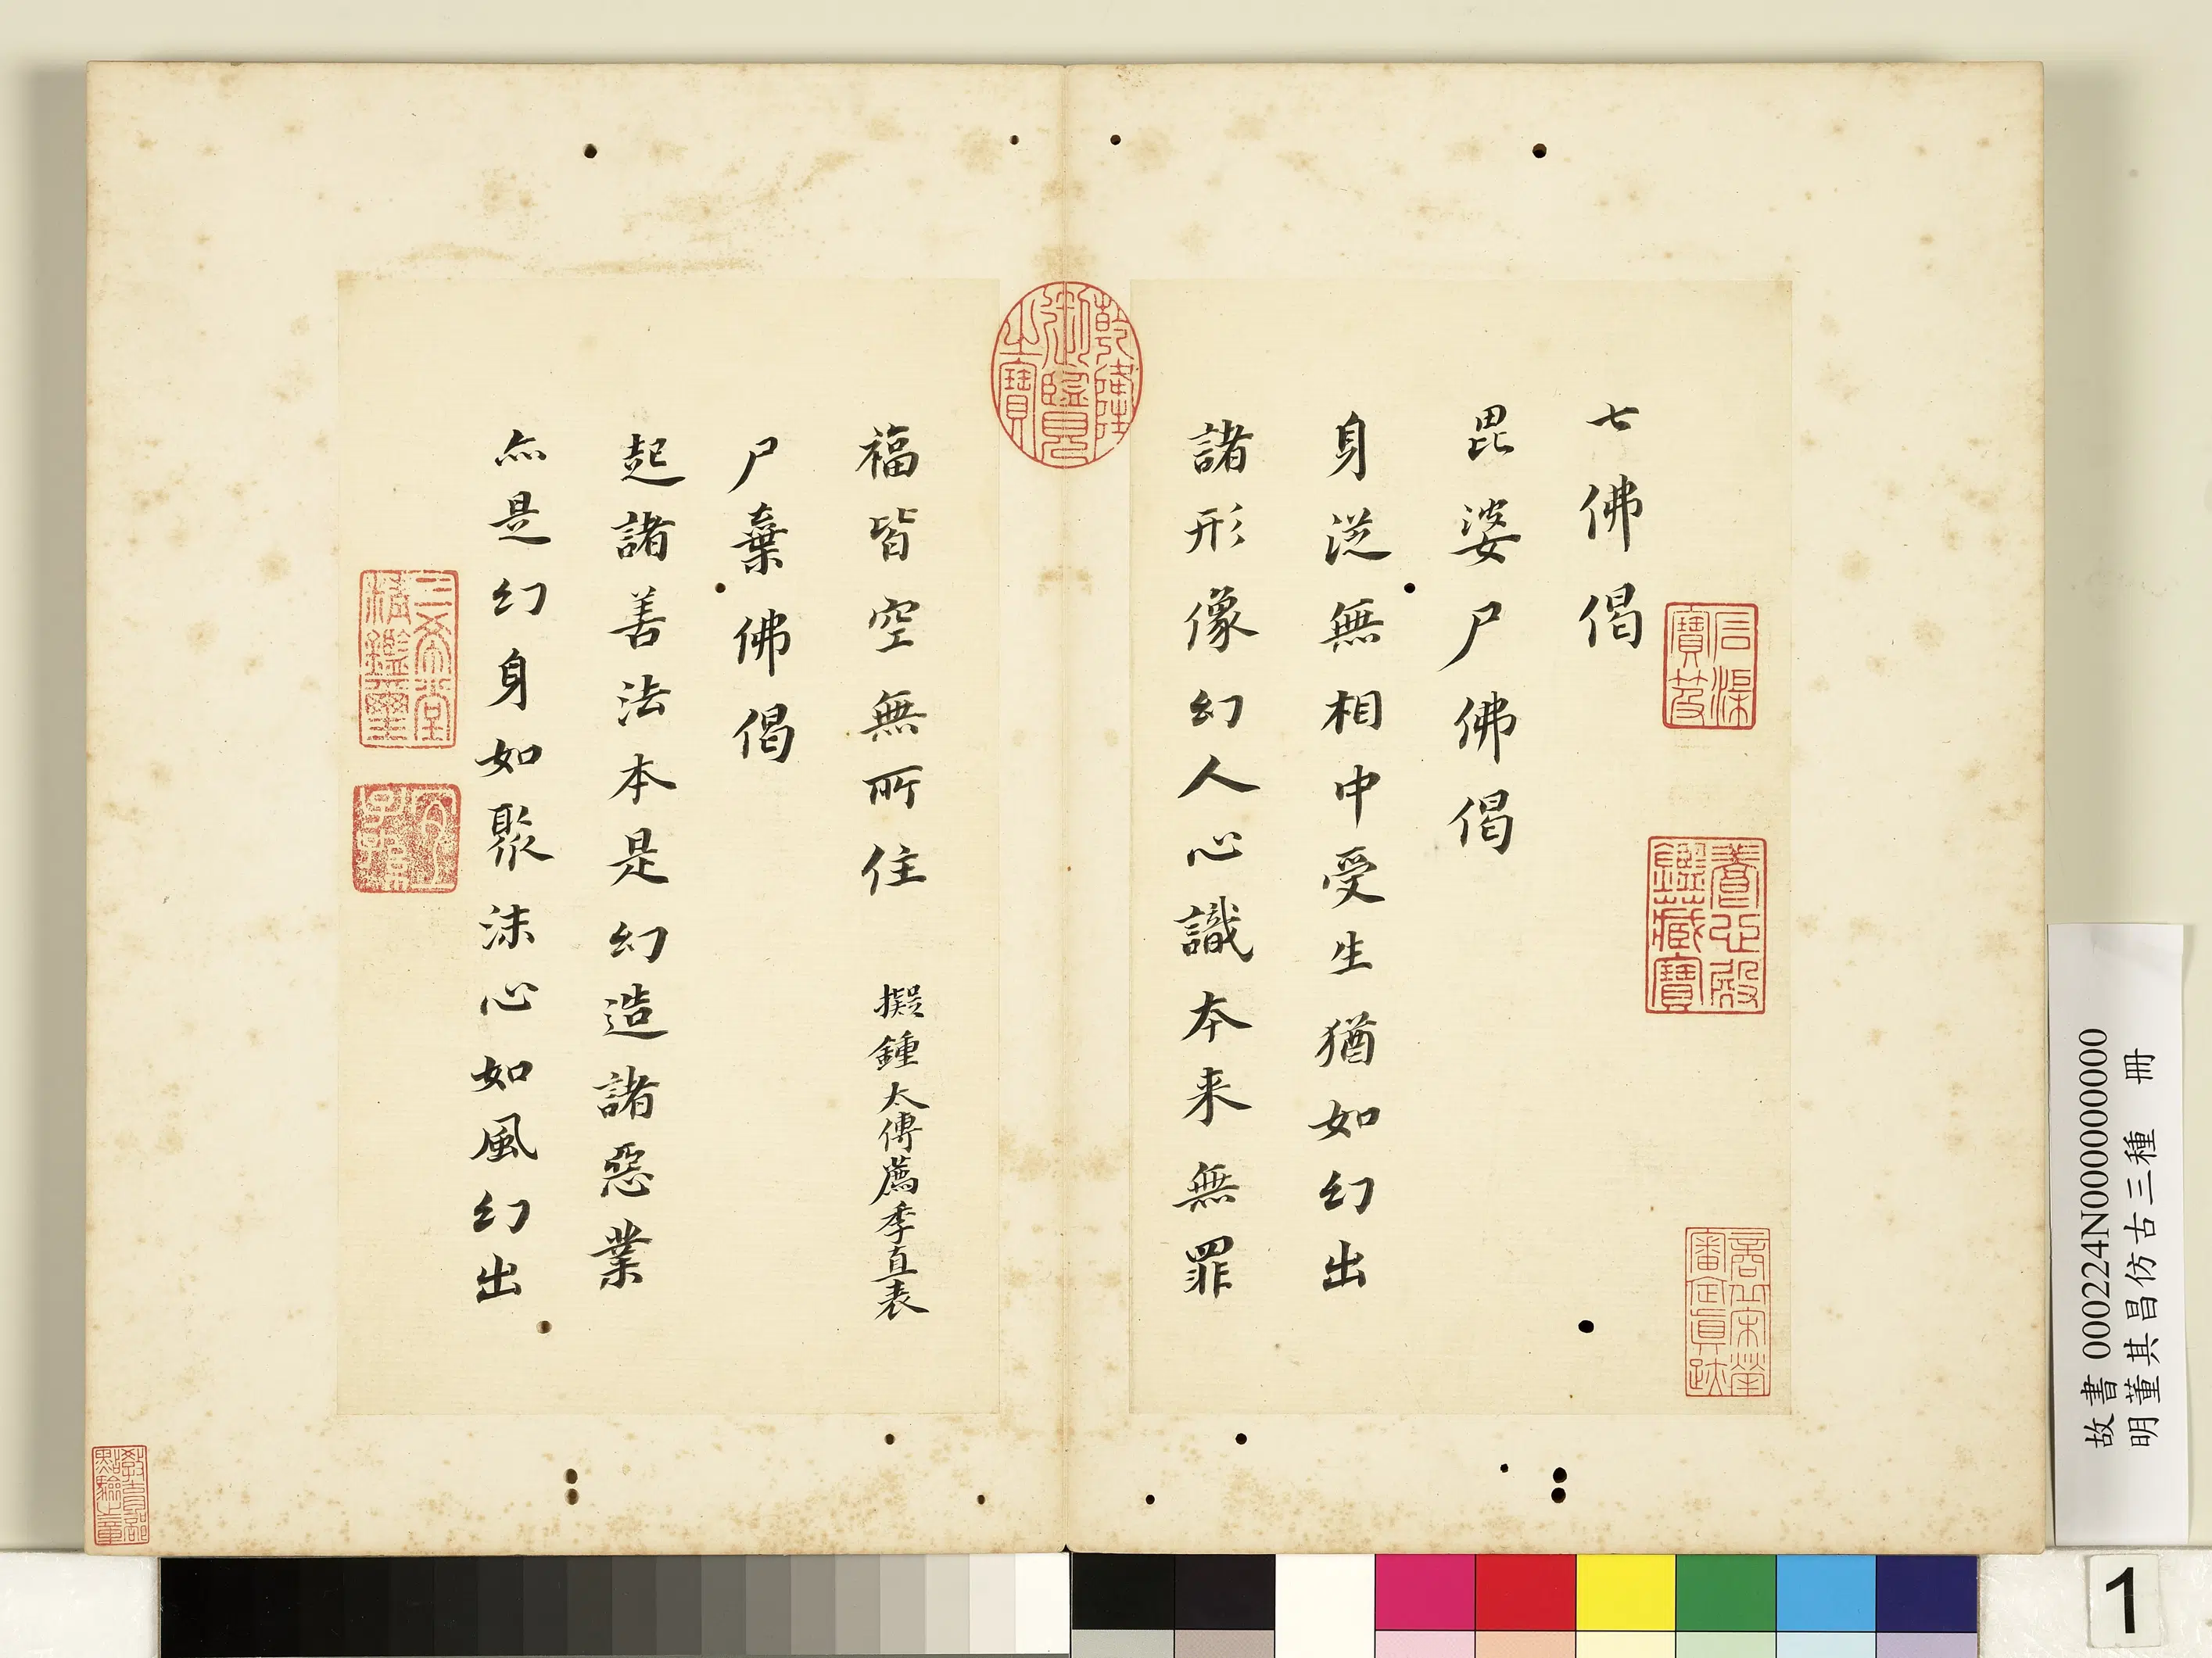 七佛偈
毘婆尸佛偈
身從無相中受生猶如幻出
諸形像幻人心識本来無罪
福皆空無所住
擬鍾太傅薦季直表
尸棄佛偈
起諸善法本是幻造諸惡業
亦是幻身如聚沫心如風幻出
乾隆御覽之寶
石渠寶笈
養心殿鑑藏寶
三希堂精鑑璽
宜子孫
教育部點驗之章
故書 000224N000000000
明董其昌仿古三種 冊
1